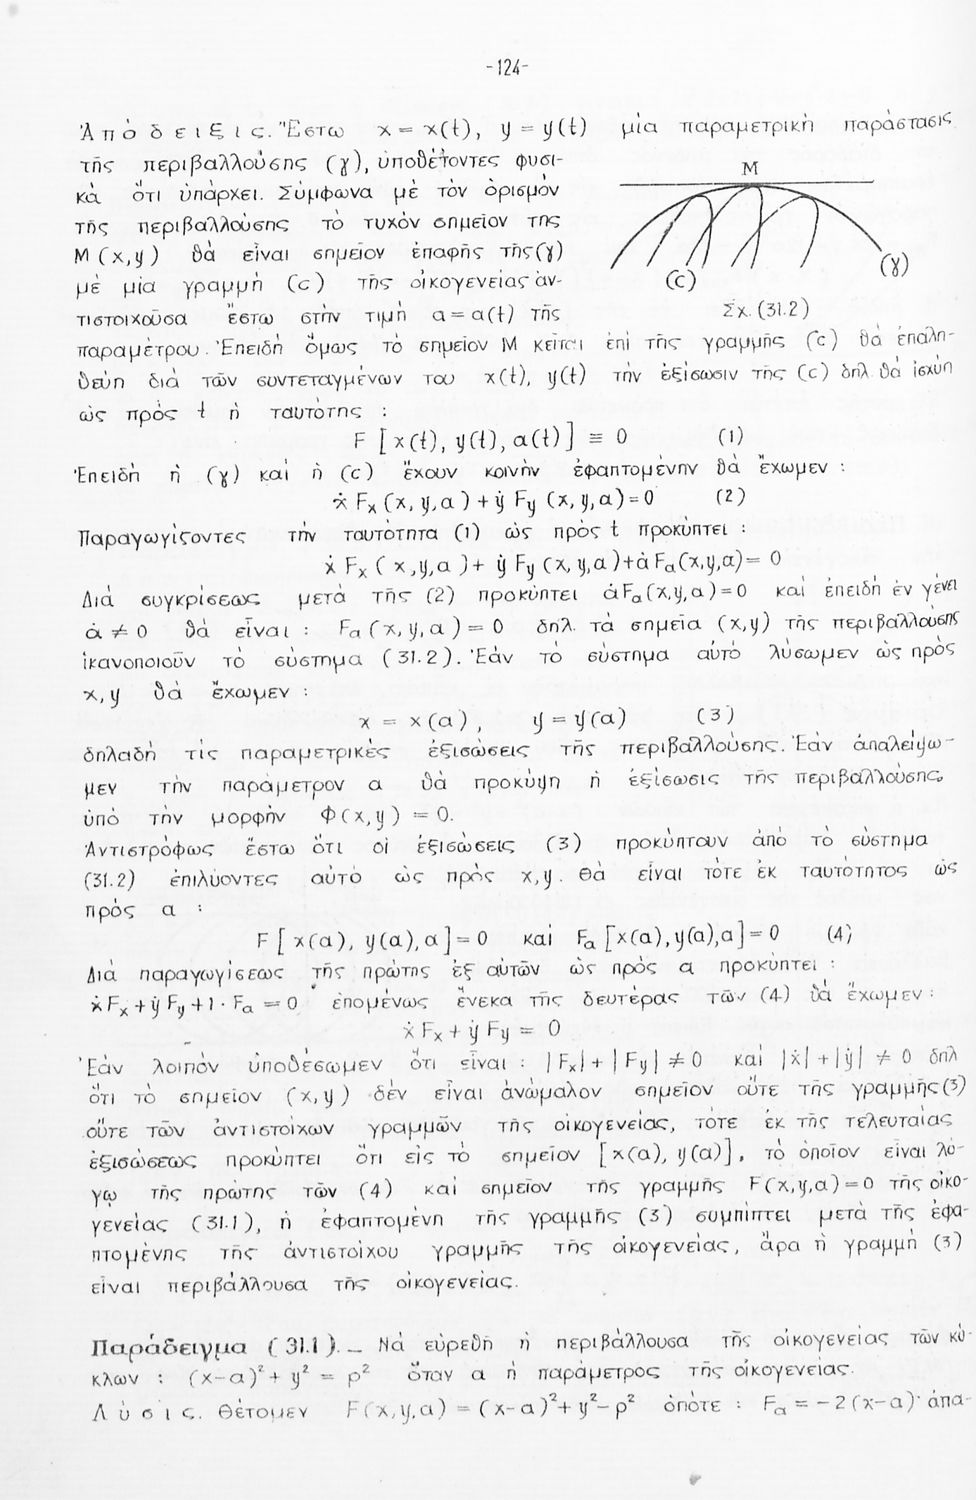 -124-
Ἀπόδειξις. Ἔστω x = x(t), y = y(t) μία παραμετρική παράστασις
τῆς περιβαλλούσης (γ), ὑποθέτοντες φυσι-
κά ὅτι ὑπάρχει. Σύμφωνα μέ τόν ὁρισμόν
τῆς περιβαλλούσης τό τυχόν σημεῖον της
M(x,y) θά εἶναι σημεῖον ἐπαφῆς τῆς(γ)
μέ μία γραμμή (c) τῆς οἰκογενείας ἀν-
τιστοιχοῦσα ἔστω στήν τιμή a=a(t) τῆς
M
(c)
(γ)
Σχ.(31.2)
παραμέτρου. Ἐπειδή ὅμως τό σημεῖον M κεῖται ἐπί τῆς γραμμῆς (c) θά ἐπαλη-
θεύη διά τῶν συντεταγμένων του x(t), y(t) τήν ἐξίσωσιν τῆς (c) δηλ. θά ἰσχύη
ὡς πρός t ἡ ταυτότης :
F [x(t), y(t), a(t)] ≡ 0 (1)
Ἐπειδή ἡ (γ) καί ἡ (c) ἔχουν κοινήν ἐφαπτομένην θά ἔχωμεν :
ẋ Fₓ(x,y,a) + ẏ F_y (x,y,a)=0 (2)
Παραγωγίζοντες τήν ταυτότητα (1) ὡς πρός t προκύπτει :
ẋ Fₓ (x,y,a) + ẏ F_y (x,y,a)+ȧ Fₐ(x,y,a)= 0
Διά συγκρίσεως μετά τῆς (2) προκύπτει ȧFₐ(x,y,a)=0 καί ἐπειδή ἐν γένει
ȧ ≠ 0 θά εἶναι : Fₐ(x,y,a)=0 δηλ. τά σημεῖα (x,y) τῆς περιβαλλούσης
ἱκανοποιοῦν τό σύστημα (31.2). Ἐάν τό σύστημα αὐτό λύσωμεν ὡς πρός
x,y θά ἔχωμεν :
x = x(a), y = y(a) (3)
δηλαδή τίς παραμετρικές ἐξισώσεις τῆς περιβαλλούσης. Ἐάν ἀπαλείψω-
μεν τήν παράμετρον a θά προκύψη ἡ ἐξίσωσις τῆς περιβαλλούσης
ὑπό τήν μορφήν Φ(x,y) = 0.
Ἀντιστρόφως ἔστω ὅτι οἱ ἐξισώσεις (3) προκύπτουν ἀπό τό σύστημα
(31.2) ἐπιλύοντες αὐτό ὡς πρός x,y. Θά εἶναι τότε ἐκ ταυτότητος ὡς
πρός a :
F[x(a), y(a),a]=0 καί Fₐ[x(a),y(a),a]=0 (4)
Διά παραγωγίσεως τῆς πρώτης ἐξ αὐτῶν ὡς πρός a προκύπτει :
ẋFₓ+ẏF_y+1·Fₐ=0 ἑπομένως ἕνεκα τῆς δευτέρας τῶν (4) θά ἔχωμεν:
ẋFₓ+ẏF_y = 0
Ἐάν λοιπόν ὑποθέσωμεν ὅτι εἶναι : |Fₓ|+|F_y| ≠ 0 καί |ẋ|+|ẏ| ≠ 0 δηλ
ὅτι τό σημεῖον (x,y) δέν εἶναι ἀνώμαλον σημεῖον οὔτε τῆς γραμμῆς(3)
οὔτε τῶν ἀντιστοίχων γραμμῶν τῆς οἰκογενείας, τότε ἐκ τῆς τελευταίας
ἐξισώσεως προκύπτει ὅτι εἰς τό σημεῖον [x(a), y(a)], τό ὁποῖον εἶναι λό-
γῳ τῆς πρώτης τῶν (4) καί σημεῖον τῆς γραμμῆς F(x,y,a)=0 τῆς οἰκο-
γενείας (31.1), ἡ ἐφαπτομένη τῆς γραμμῆς (3) συμπίπτει μετά τῆς ἐφα-
πτομένης τῆς ἀντιστοίχου γραμμῆς τῆς οἰκογενείας, ἄρα ἡ γραμμή (3)
εἶναι περιβάλλουσα τῆς οἰκογενείας.
Παράδειγμα (31.1)._ Νά εὑρεθῆ ἡ περιβάλλουσα τῆς οἰκογενείας τῶν κύ-
κλων : (x-a)²+y² = ρ² ὅταν a ἡ παράμετρος τῆς οἰκογενείας.
Λύσις. Θέτομεν F(x,y,a) = (x-a)²+y²-ρ² ὁπότε : Fₐ=-2(x-a)· ἀπα-